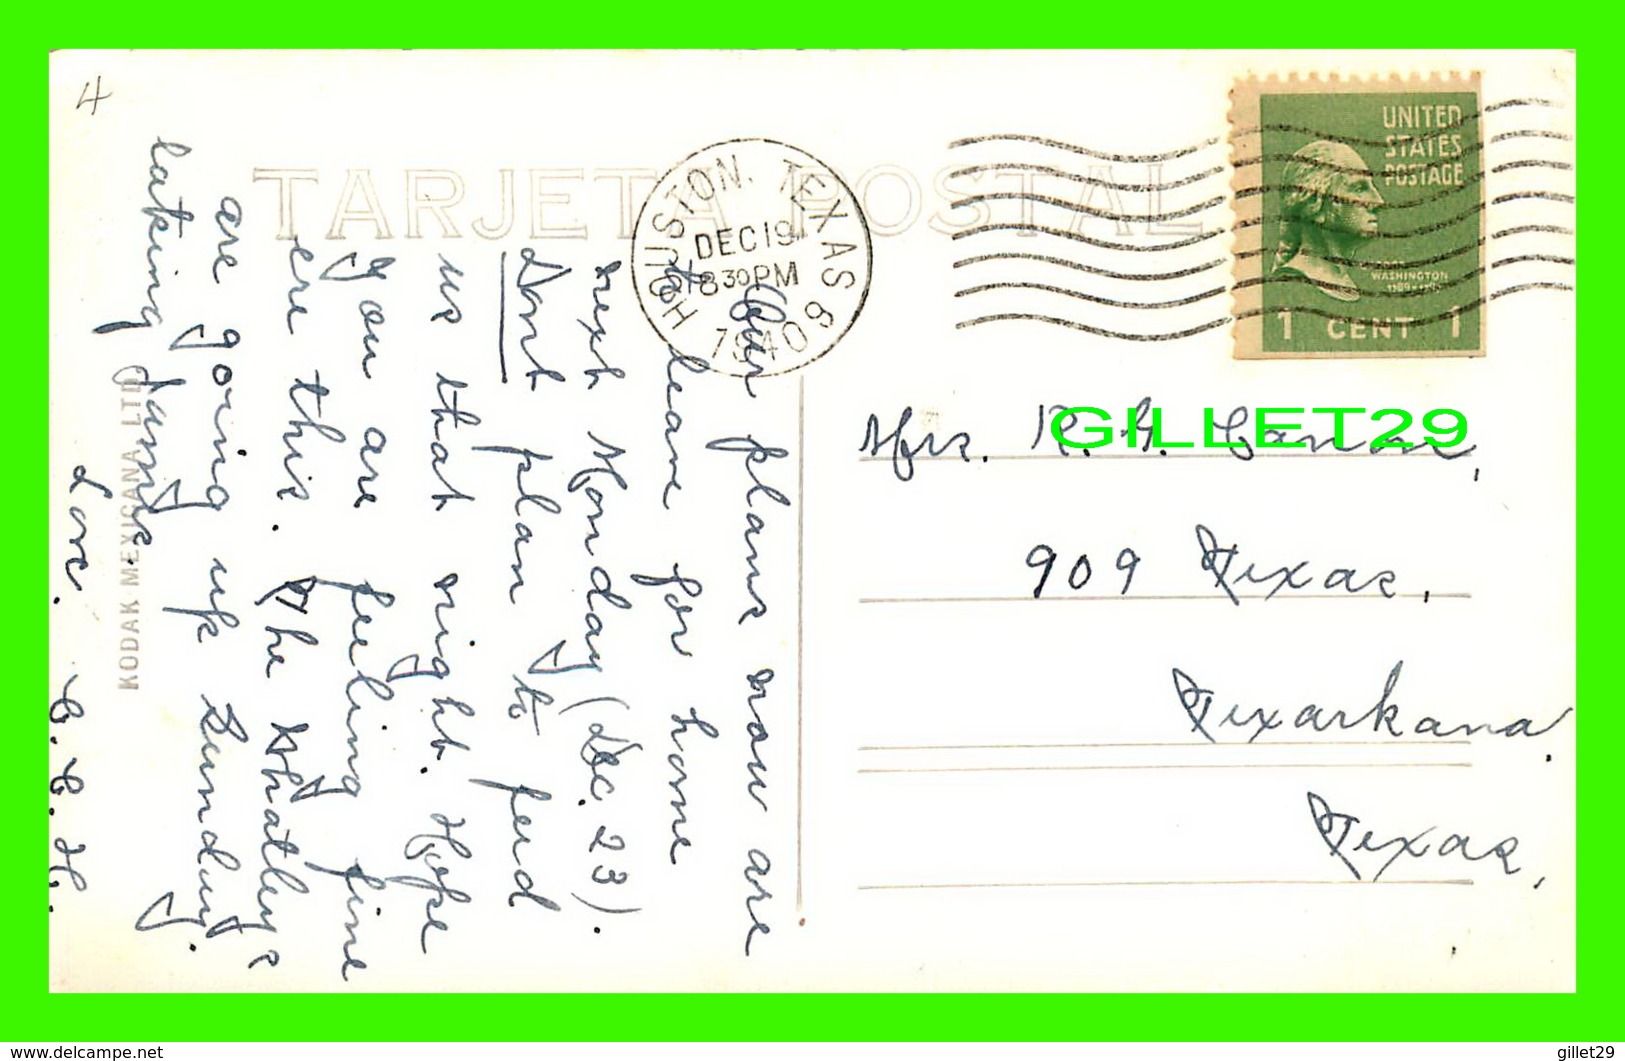 4
TARJETA POSTAL
HOUSTON, TEXAS
DEC 19
8 30 PM
1940
UNITED
STATES
POSTAGE
WASHINGTON
1 CENT 1
Our plans now are
to leave for home
next Monday (Dec. 23).
Dont plan to feed
us that night. Hope
you are feeling fine
ere this. The Whatley's
are going up Sunday.
taking Jamye.
Love.
C. C. H.
KODAK MEXICANA LTD
GILLET29
Mrs. R. G.
909 Texas,
Texarkana,
Texas,
delcampe.net
gillet29